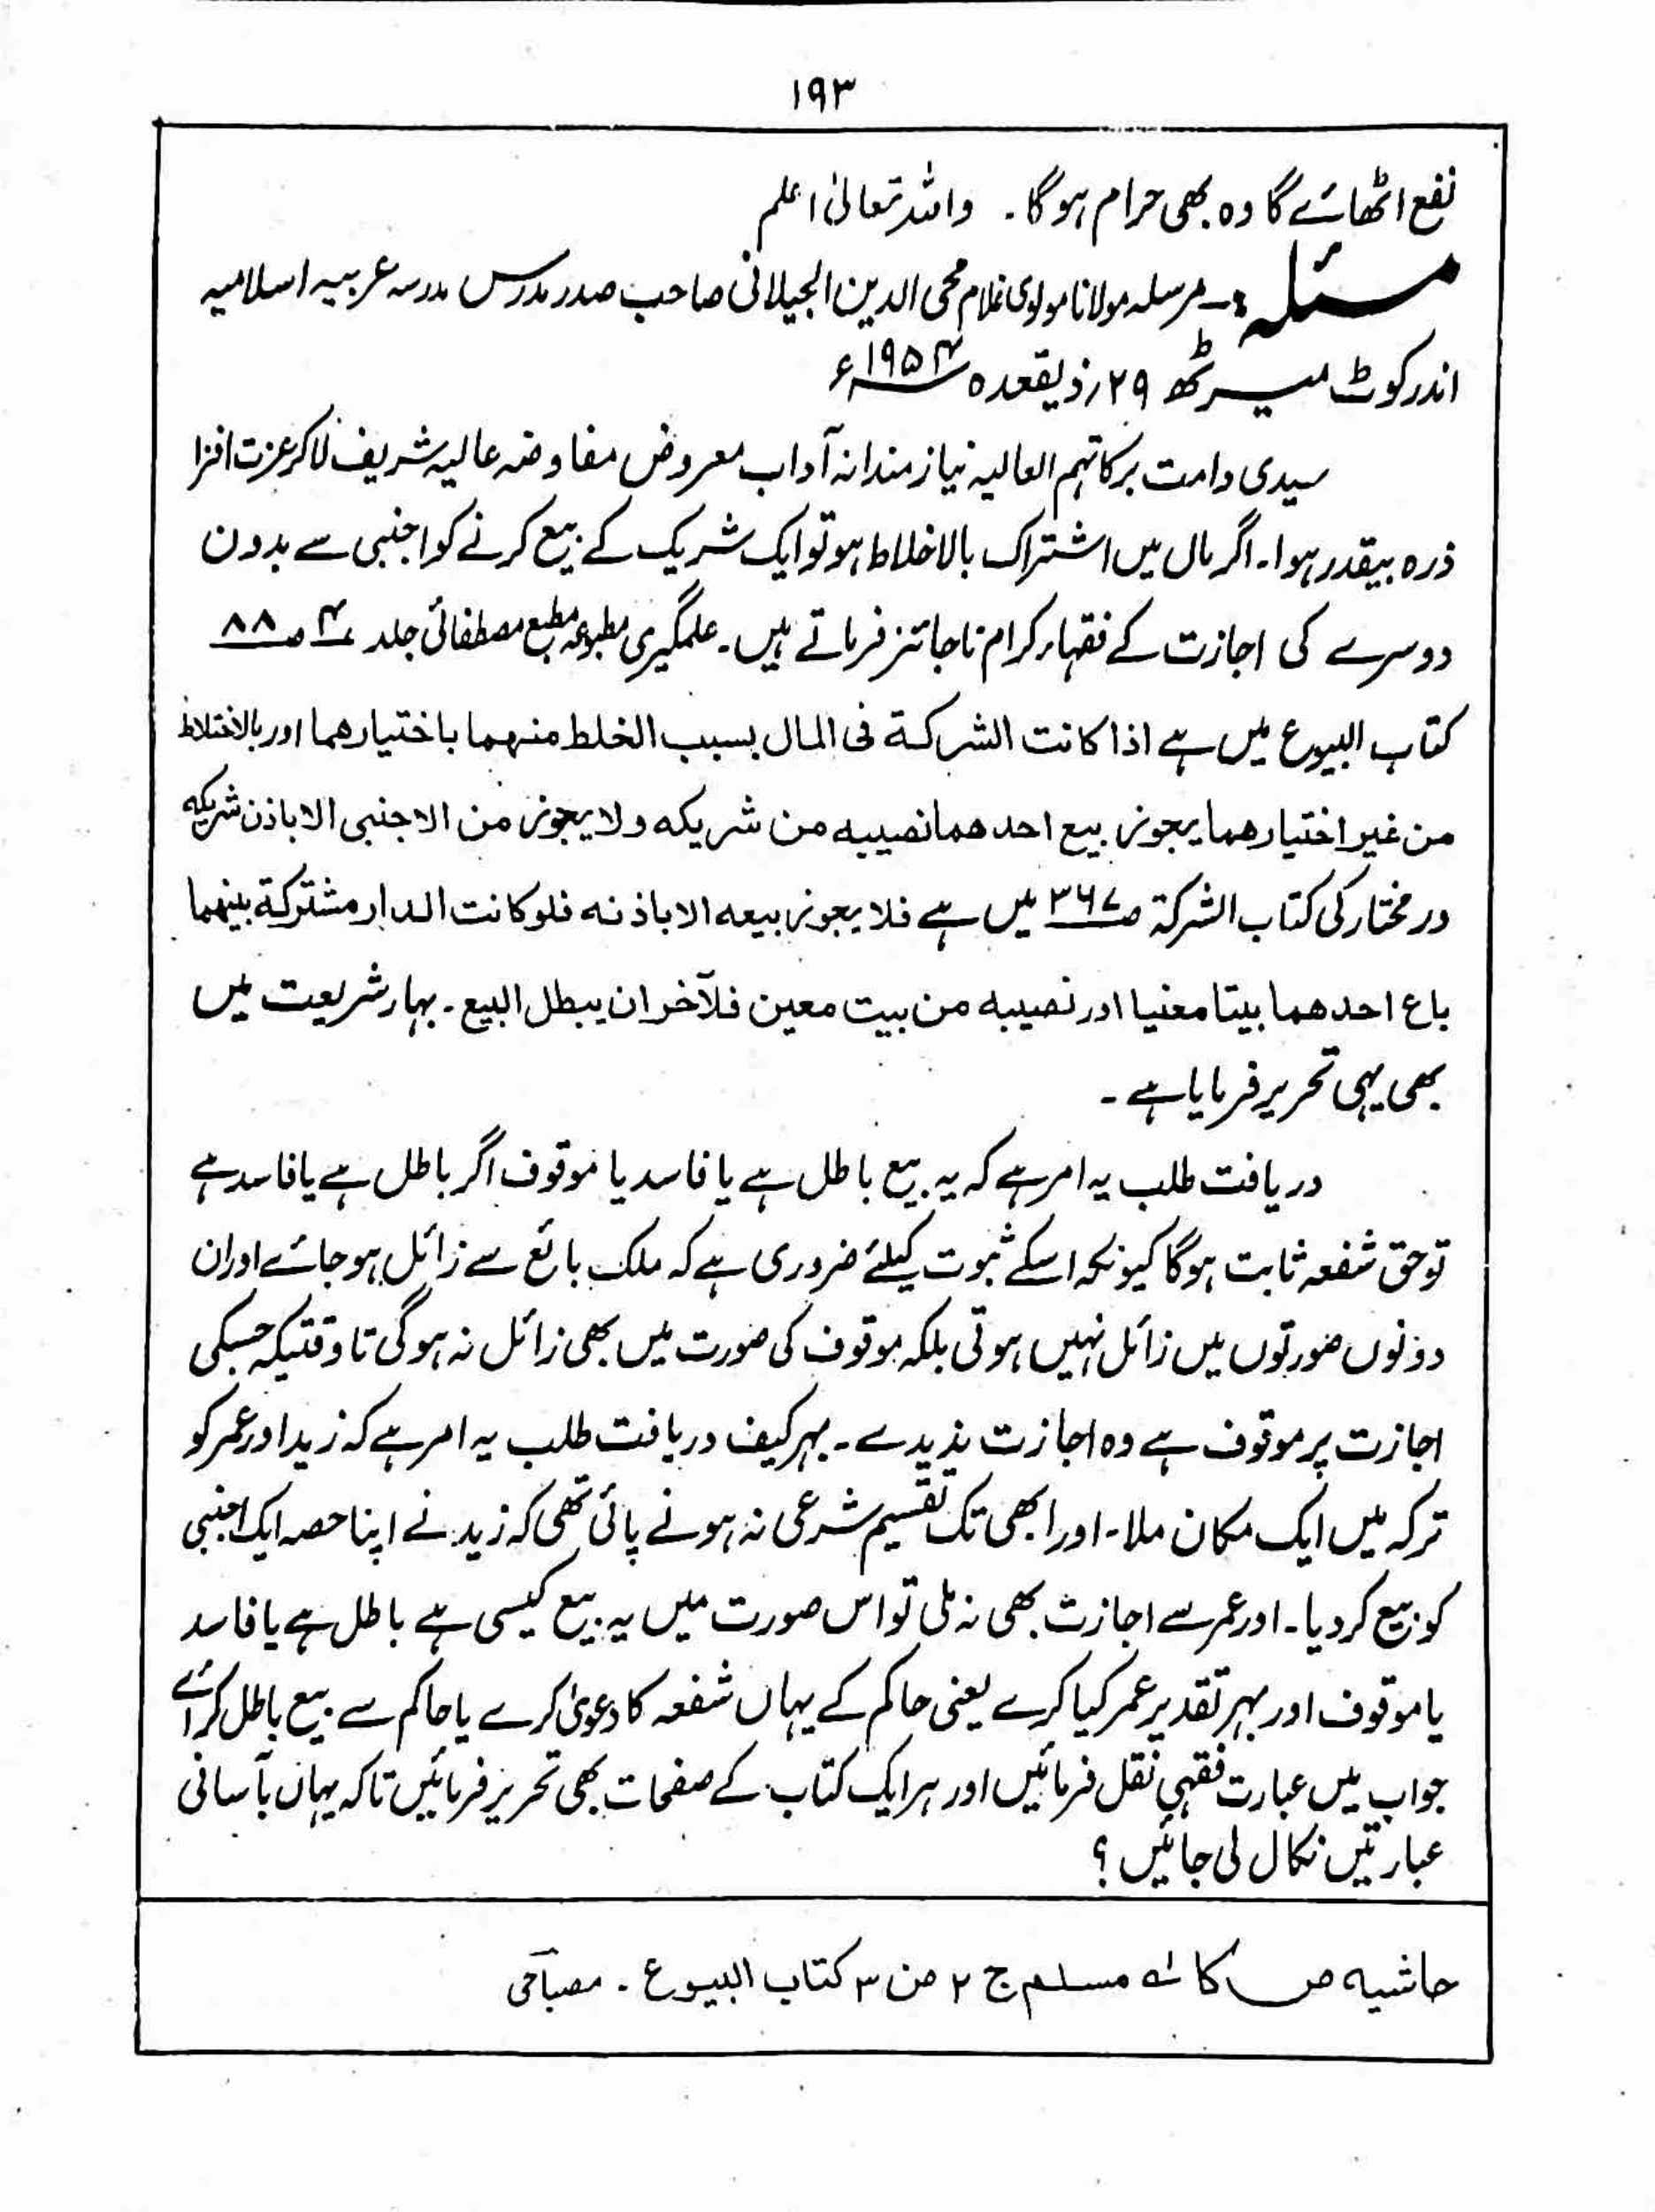 ۱۹۳
نفع اٹھائے گا وہ بھی حرام ہوگا۔ واللہ تعالیٰ اعلم
مسئلہ :۔ مرسلہ مولانا مولوی غلام محی الدین الجیلانی صاحب صدر مدرس مدرسہ عربیہ اسلامیہ
اندر کوٹ میرٹھ ۲۹؍ ذیقعدہ ۱۹۵۴ء
سیدی دامت برکاتہم العالیہ نیاز مندانہ آداب معروض مفاوضہ عالیہ شریف لاکر عزت افزا
ذرہ بیقدر ہوا۔ اگر مال میں اشتراک بالاخلاط ہو تو ایک شریک کے بیع کرنے کو اجنبی سے بدون
دوسرے کی اجازت کے فقہاء کرام ناجائز فرماتے ہیں۔ علمگیری مطبوعہ مطبع مصطفائی جلد ۴ ص ۸۸
کتاب البیوع میں ہے اذا کانت الشرکة فی المال بسبب الخلط منہما باختیارھما اور بالاختلاط
من غیر اختیارھما یجوز بیع احدھما نصیبہ من شریکہ ولا یجوز من الاجنبی الا باذن شریکہ
در مختار کی کتاب الشرکة ص ۳۶۷ میں ہے فلا یجوز بیعہ الا باذنہ فلو کانت الدار مشترکة بینہما
باع احدھما بیتا معنیا اور نصیبہ من بیت معین فلآخر ان یبطل البیع۔ بہار شریعت میں
بھی یہی تحریر فرمایا ہے ۔
دریافت طلب یہ امر ہے کہ یہ بیع باطل ہے یا فاسد یا موقوف اگر باطل ہے یا فاسد ہے
تو حق شفعہ ثابت ہوگا کیونکہ اسکے ثبوت کیلئے ضروری ہے کہ ملک بائع سے زائل ہو جائے اور ان
دونوں صورتوں میں زائل نہیں ہوتی بلکہ موقوف کی صورت میں بھی زائل نہ ہوگی تا وقتیکہ جسکی
اجازت پر موقوف ہے وہ اجازت نہ دیدے۔ بہر کیف دریافت طلب یہ امر ہے کہ زید اور عمر کو
ترکہ میں ایک مکان ملا۔ اور ابھی تک تقسیم شرعی نہ ہونے پائی تھی کہ زید نے اپنا حصہ ایک اجنبی
کو بیع کر دیا۔ اور عمر سے اجازت بھی نہ ملی تو اس صورت میں یہ بیع کیسی ہے باطل ہے یا فاسد
یا موقوف اور بہر تقدیر عمر کیا کرے یعنی حاکم کے یہاں شفعہ کا دعویٰ کرے یا حاکم سے بیع باطل کرائے
جواب میں عبارت فقہی نقل فرمائیں اور ہر ایک کتاب کے صفحات بھی تحریر فرمائیں تاکہ یہاں بآسانی
عبارتیں نکال لی جائیں ؟
حاشیہ ص کا لہ مسلم ج ۲ ص ۳ کتاب البیوع ۔ مصباحی